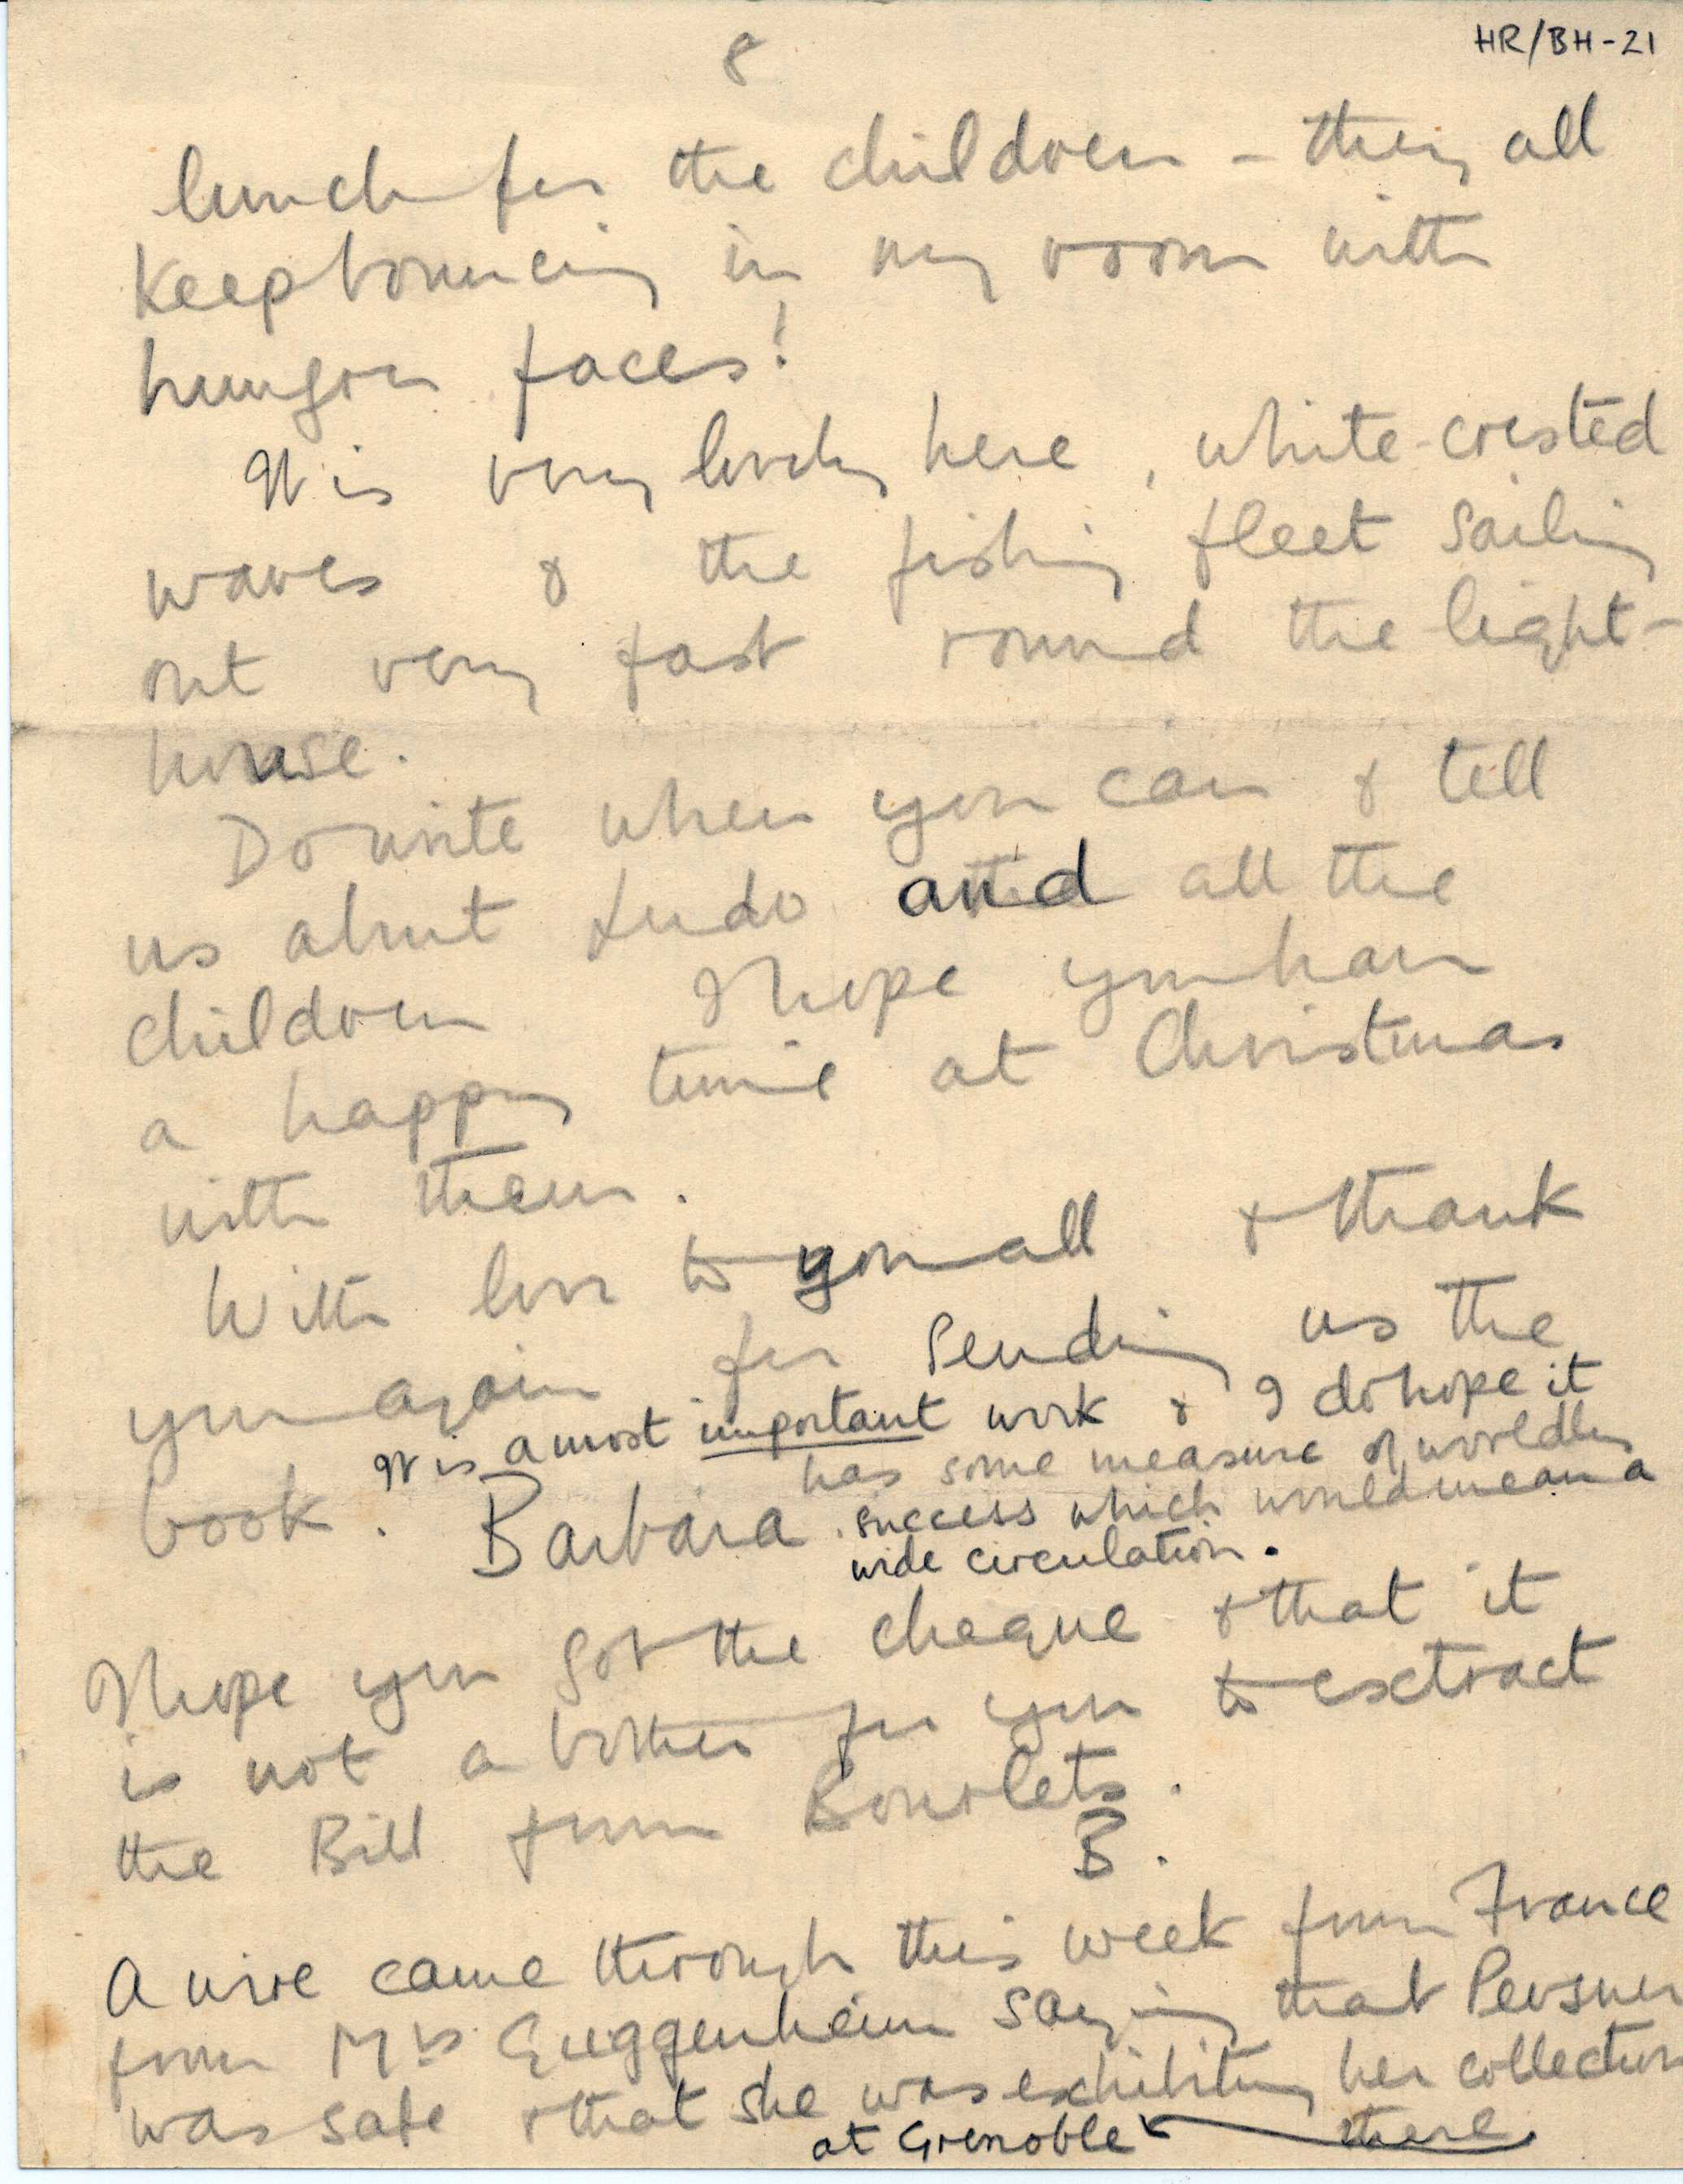 8
HR/BH-21
lunch for the children – they all
keep bouncing in my room with
hungry faces!
It is very lovely here, white-crested
waves & the fishing fleet sailing
out very fast round the light-
house.
Do write when you can & tell
us about Ludo and all the
children I hope you have
a happy time at Christmas
with them.
With love to you all & thank
you again for sending us the
book.
It is a most important work & I do hope it
has some measure of worldly
success which would mean a
wide circulation.
Barbara
I hope you got the cheque & that it
is not a bother for you to extract
the Bill from Bourlets.
B.
A wire came through this week from France
from Mrs Guggenheim saying that Pevsner
was safe & that she was exhibiting her collection
at Grenoble there.